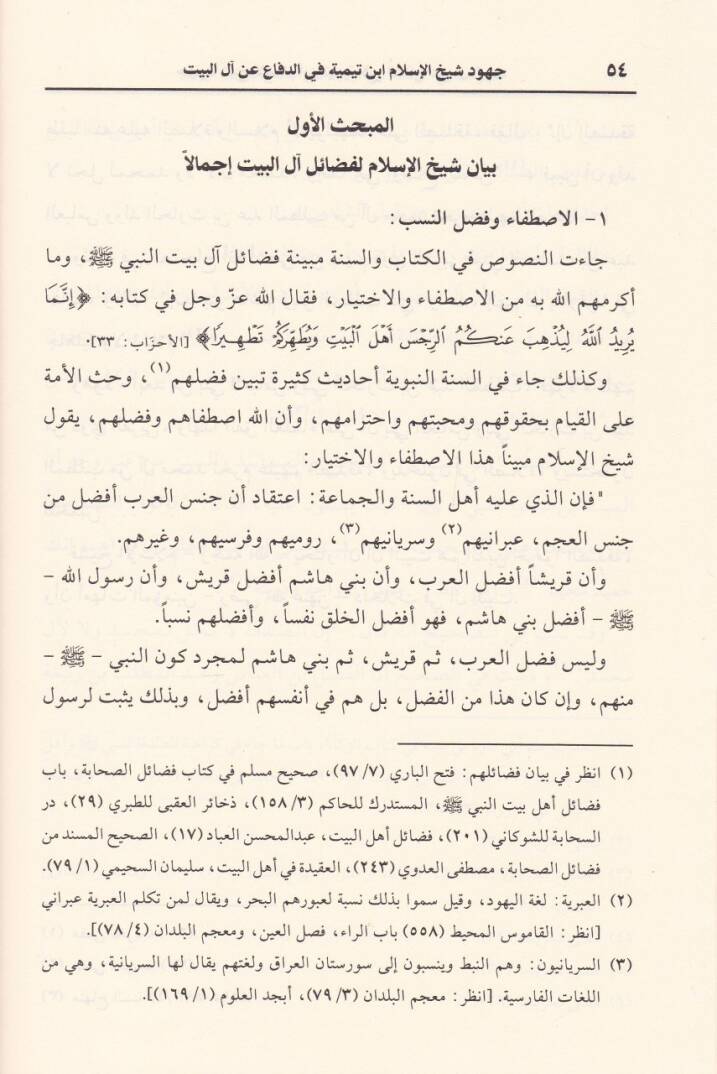 ٥٤ جهود شيخ الإسلام ابن تيمية في الدفاع عن آل البيت
المبحث الأول
بيان شيخ الإسلام لفضائل آل البيت إجمالاً
١- الاصطفاء وفضل النسب:
جاءت النصوص في الكتاب والسنة مبينة فضائل آل بيت النبي ﷺ، وما
أكرمهم الله به من الاصطفاء والاختيار، فقال الله عزّ وجل في كتابه: ﴿إِنَّمَا
يُرِيدُ ٱللَّهُ لِيُذْهِبَ عَنكُمُ ٱلرِّجْسَ أَهْلَ ٱلْبَيْتِ وَيُطَهِّرَكُمْ تَطْهِيرًا﴾ [الأحزَاب: ٣٣].
وكذلك جاء في السنة النبوية أحاديث كثيرة تبين فضلهم(١)، وحث الأمة
على القيام بحقوقهم ومحبتهم واحترامهم، وأن الله اصطفاهم وفضلهم، يقول
شيخ الإسلام مبيناً هذا الاصطفاء والاختيار:
"فإن الذي عليه أهل السنة والجماعة: اعتقاد أن جنس العرب أفضل من
جنس العجم، عبرانيهم(٢) وسريانيهم(٣)، روميهم وفرسيهم، وغيرهم.
وأن قريشاً أفضل العرب، وأن بني هاشم أفضل قريش، وأن رسول الله -
ﷺ - أفضل بني هاشم، فهو أفضل الخلق نفساً، وأفضلهم نسباً.
وليس فضل العرب، ثم قريش، ثم بني هاشم لمجرد كون النبي - ﷺ -
منهم، وإن كان هذا من الفضل، بل هم في أنفسهم أفضل، وبذلك يثبت لرسول
(١) انظر في بيان فضائلهم: فتح الباري (٧/ ٩٧)، صحيح مسلم في كتاب فضائل الصحابة، باب
فضائل أهل بيت النبي ﷺ، المستدرك للحاكم (٣/ ١٥٨)، ذخائر العقبى للطبري (٢٩)، در
السحابة للشوكاني (٢٠١)، فضائل أهل البيت، عبدالمحسن العباد (١٧)، الصحيح المسند من
فضائل الصحابة، مصطفى العدوي (٢٤٣)، العقيدة في أهل البيت، سليمان السحيمي (١/ ٧٩).
(٢) العبرية: لغة اليهود، وقيل سموا بذلك نسبة لعبورهم البحر، ويقال لمن تكلم العبرية عبراني
[انظر: القاموس المحيط (٥٥٨) باب الراء، فصل العين، ومعجم البلدان (٤/ ٧٨)].
(٣) السريانيون: وهم النبط وينسبون إلى سورستان العراق ولغتهم يقال لها السريانية، وهي من
اللغات الفارسية. [انظر: معجم البلدان (٣/ ٧٩)، أبجد العلوم (١/ ١٦٩)].